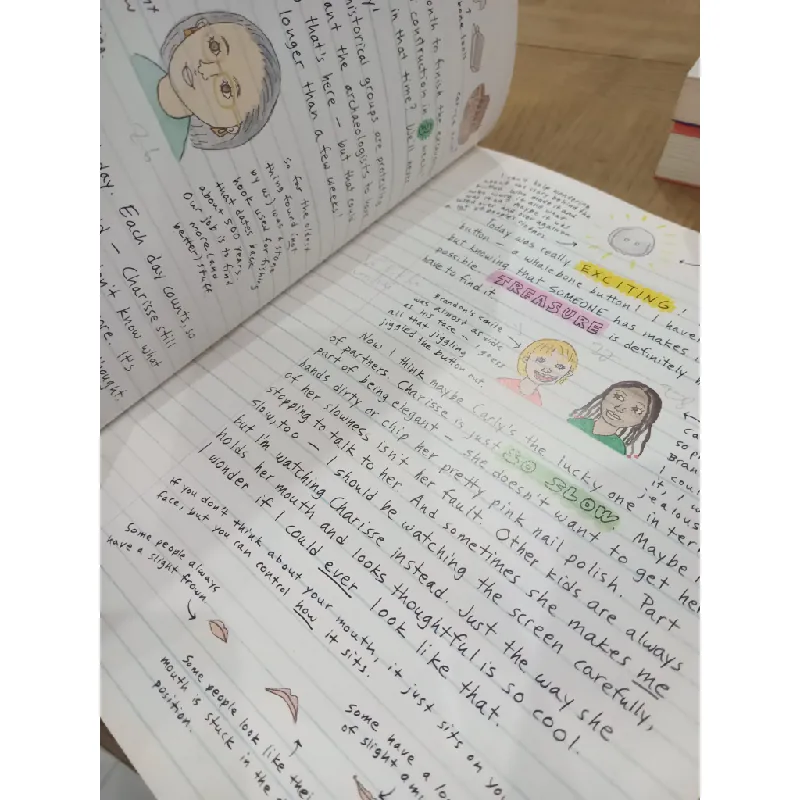 onth to finish the
construction in
in that time? We'll never
y!
historical groups are protesting,
ant the archaeologists to have
that's here - but that could
longer than a few weeks!
So far the oldest
thing found (not
by us) was a stone
hook used for fishing
that dates back
about 500 years.
Our job is to find
more (and
better) stuff
day. Each day counts, so
d - Charisse still
n't know what
are. It's
thought.
Today was really EXCITING!
button - a whalebone button! I haven't
but knowing that SOMEONE has makes
possible. TREASURE is definitely h
have to find it
Brandon's smile
was almost as wide
as his face - I guess
all that jiggling
jiggled the button out.
Now I think maybe Carly's the lucky one in ter
of partners. Charisse is just SO SLOW. Maybe
part of being elegant - she doesn't want to get her
hands dirty or chip her pretty pink nail polish. Part
of her slowness isn't her fault. Other kids are always
stopping to talk to her. And sometimes she makes me
slow, too - I should be watching the screen carefully,
but I'm watching Charisse instead. Just the way she
holds her mouth and looks thoughtful is so cool.
I wonder if I could ever look like that.
Ca
so p
Bran
I coul
it, I wo
jealous
If you don't think about your mouth, it just sits on you
face, but you can control how it sits.
Some people always
have a slight frown
Some people look like thei
mouth is stuck in the
position.
Some have a lo
of slight ami